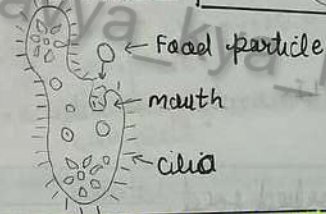 Food particle
mouth
cilia